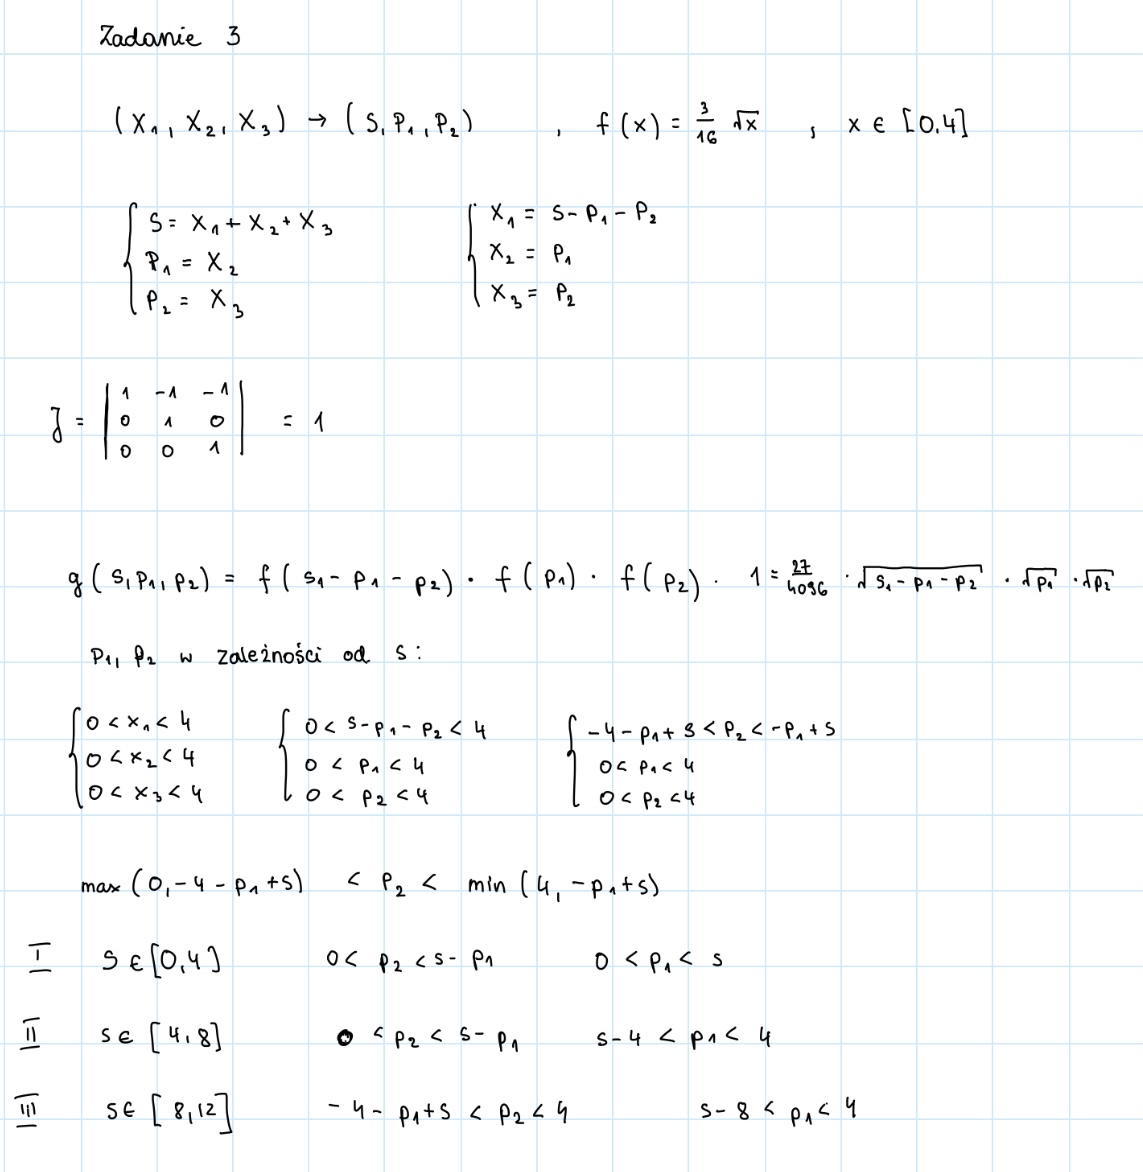 Zadanie 3
(X₁, X₂, X₃) → (S, P₁, P₂) , f(x) = 3/16 √x , x ∈ [0,4]
{ S = X₁ + X₂ + X₃ { X₁ = S - P₁ - P₂
P₁ = X₂ X₂ = P₁
P₂ = X₃ X₃ = P₂
J = | 1 -1 -1 |
| 0 1 0 | = 1
| 0 0 1 |
g(s, p₁, p₂) = f(s₁ - p₁ - p₂) · f(p₁) · f(p₂) · 1 = 27/4096 · √(s₁ - p₁ - p₂) · √p₁ · √p₂
P₁, P₂ w zależności od s:
{ 0 < x₁ < 4 { 0 < s - p₁ - p₂ < 4 { -4 - p₁ + s < p₂ < -p₁ + s
0 < x₂ < 4 0 < p₁ < 4 0 < p₁ < 4
0 < x₃ < 4 0 < p₂ < 4 0 < p₂ < 4
max(0, -4 - p₁ + s) < p₂ < min(4, -p₁ + s)
I S ∈ [0,4] 0 < p₂ < s - p₁ 0 < p₁ < s
II s ∈ [4,8] 0 < p₂ < s - p₁ s - 4 < p₁ < 4
III s ∈ [8,12] -4 - p₁ + s < p₂ < 4 s - 8 < p₁ < 4